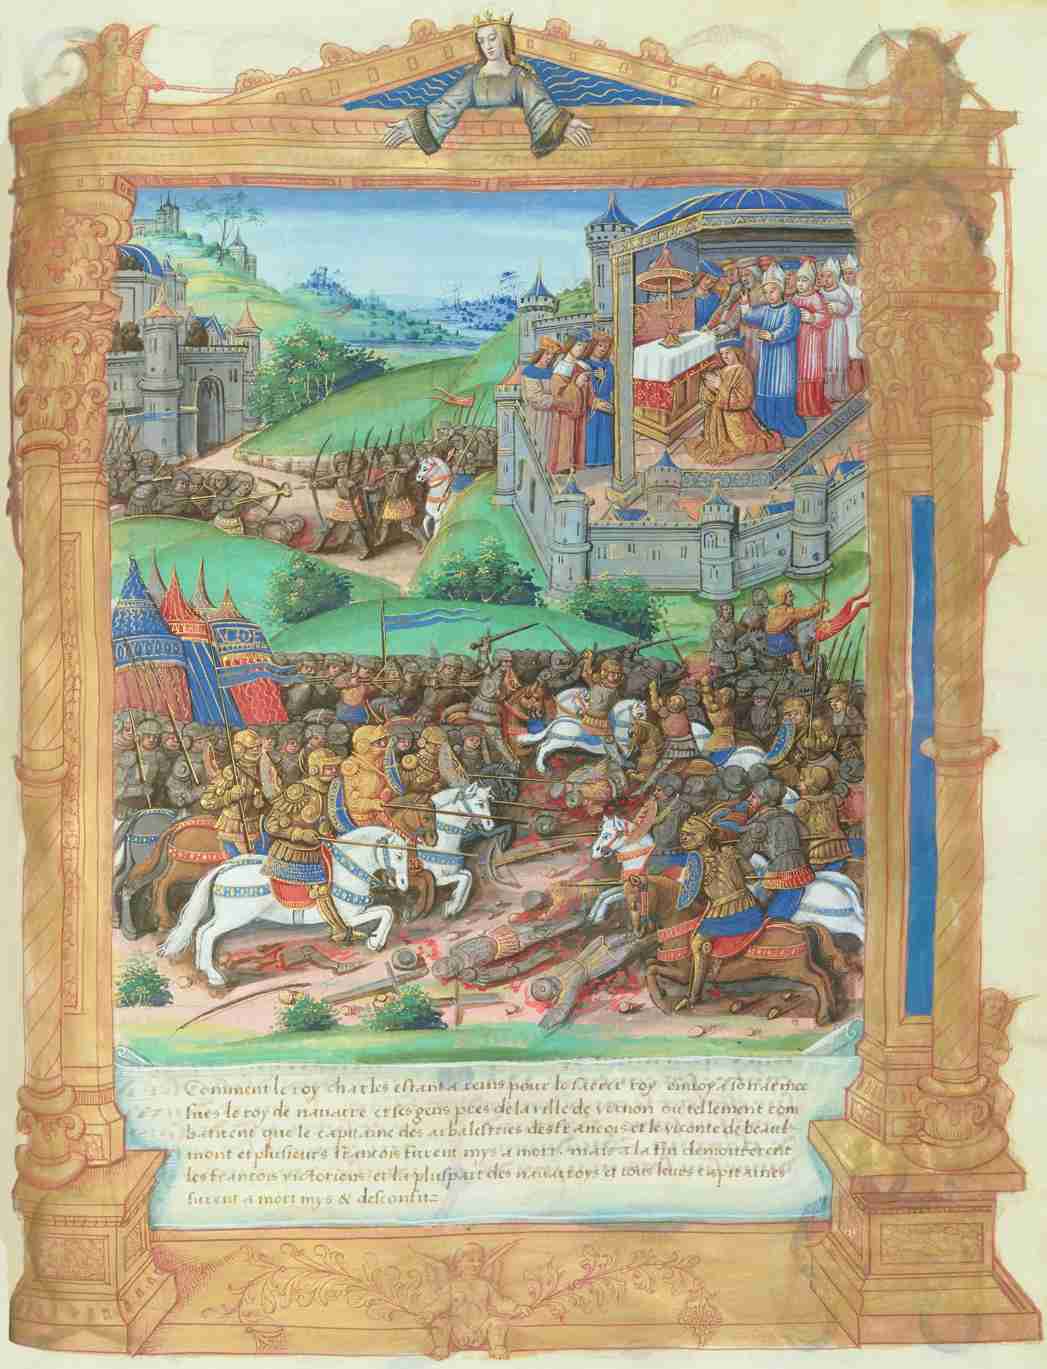 Comment le roy charles estant a reins pour le sacrer roy envoya son armee
sus le roy de navarre et ses gens pres de la ville de vernon ou tellement com
batirent que le capitaine des arbalestries des francois et le viconte de beaul
mont et plusieurs francois furent mys a mort. mais a la fin demourerent
les francois victoriens et la pluspart des navarroys et tous leurs capitaines
furent a mort mys & desconfitz